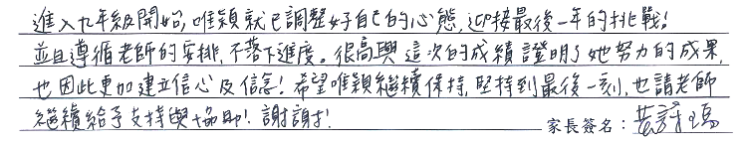 進入九年級開始,唯穎就已調整好自己的心態,迎接最後一年的挑戰!
並且遵循老師的安排,不落下進度。很高興這次的成績證明了她努力的成果,
也因此更加建立信心及信念!希望唯穎繼續保持,堅持到最後一刻,也請老師
繼續給予支持與協助!謝謝! 家長簽名:黃